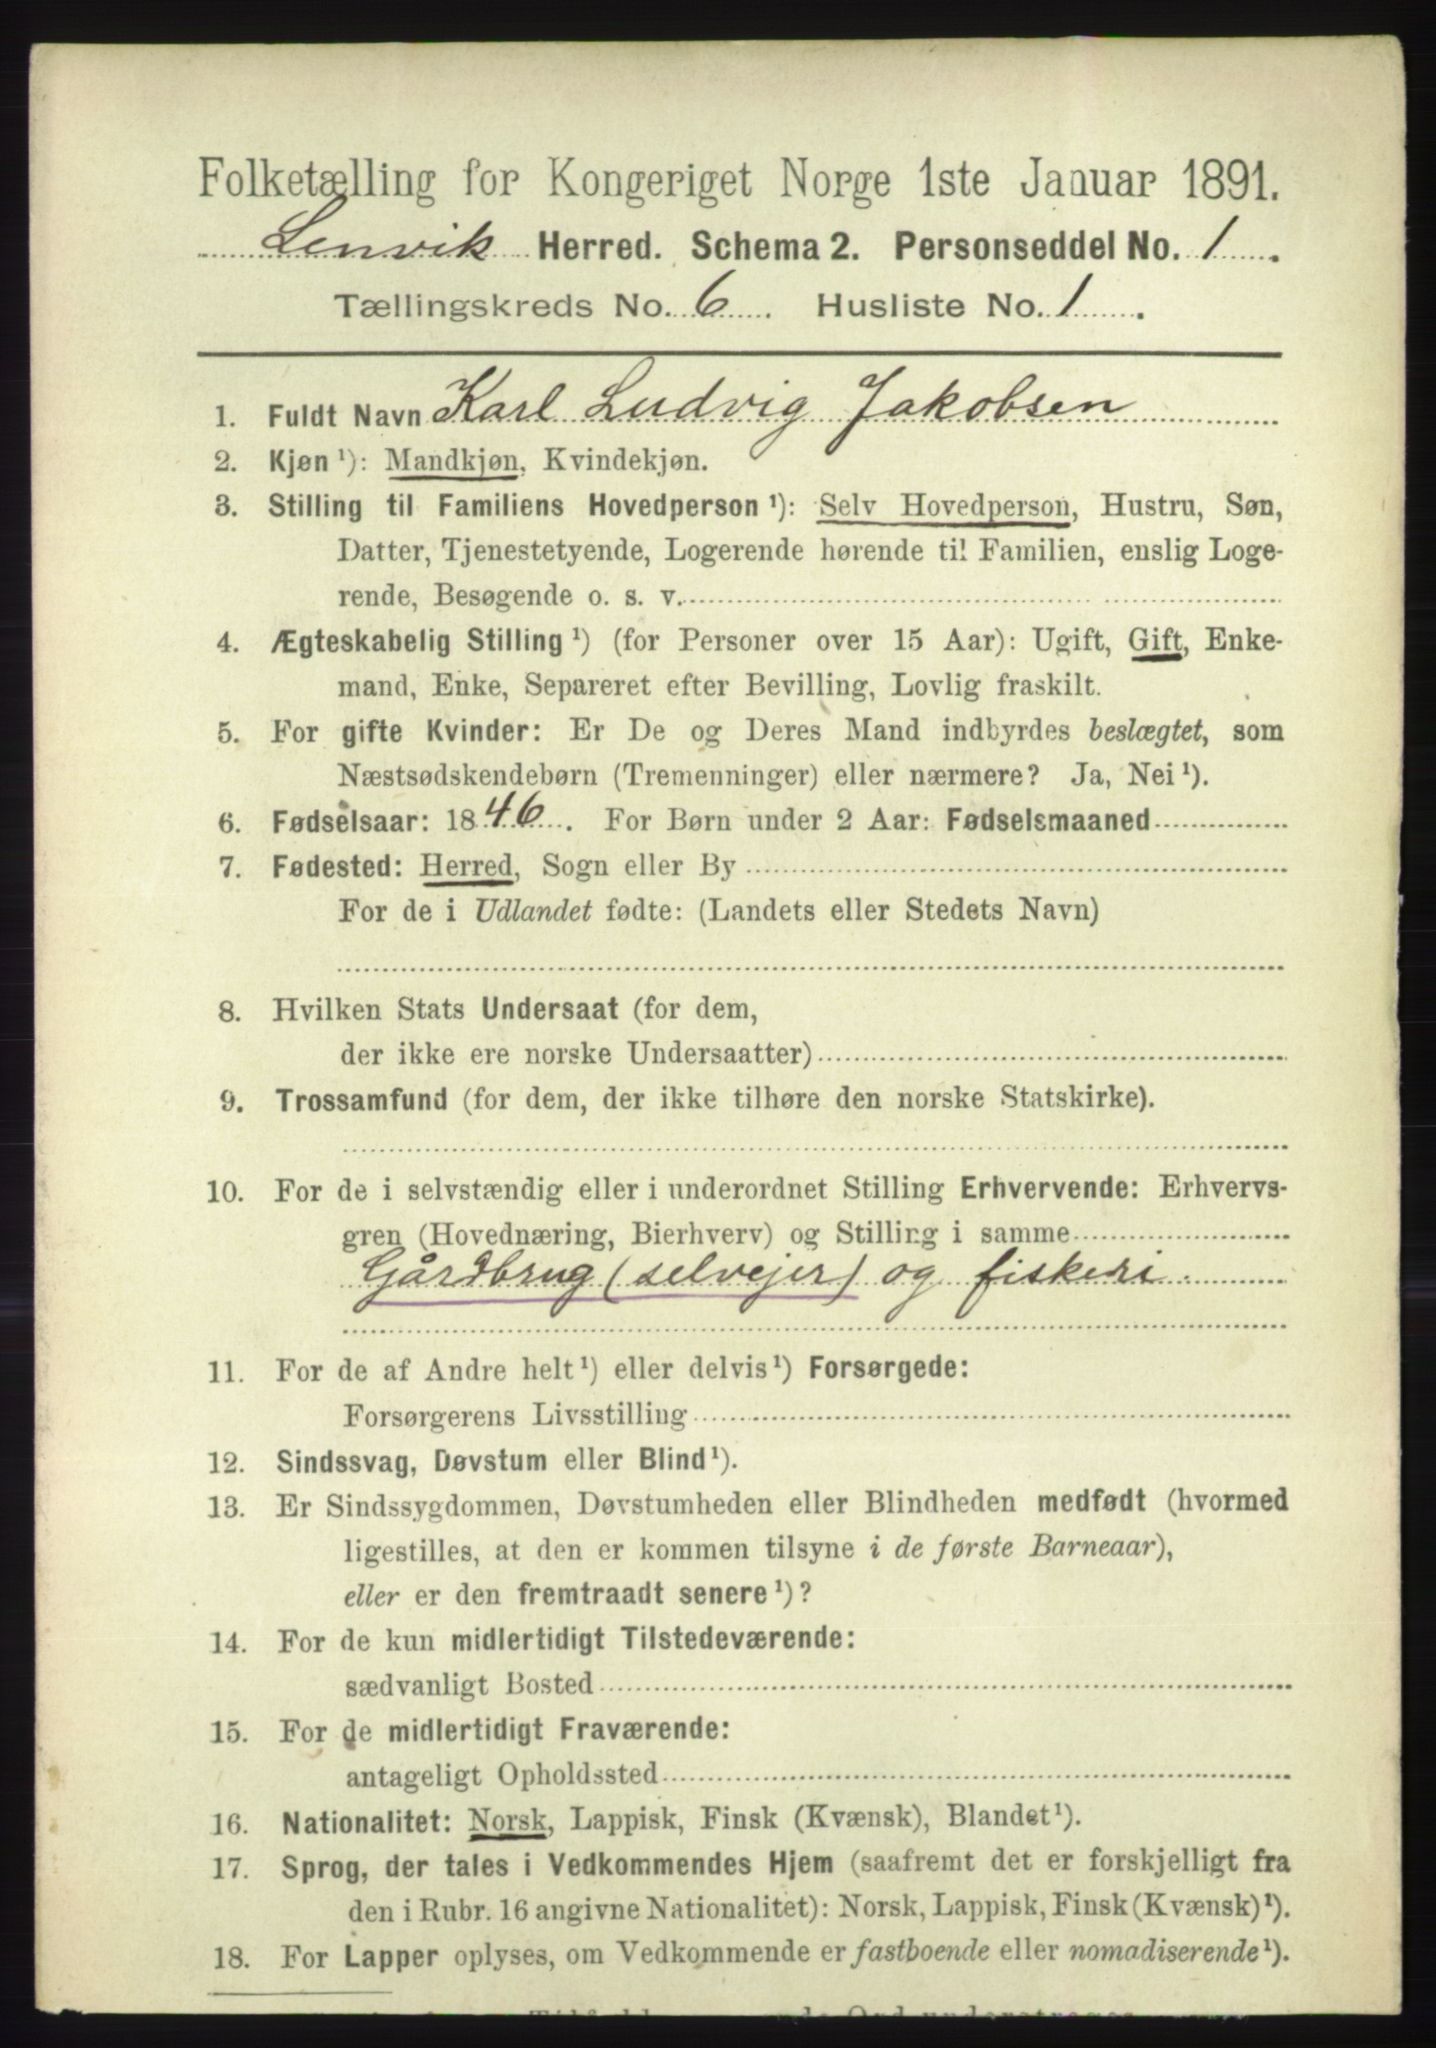 Folketælling for Kongeriget Norge 1ste Januar 1891.
Lenvik Herred. Schema 2. Personseddel No. 1.
Tællingskreds No. 6. Husliste No. 1.
1. Fuldt Navn Karl Ludvig Jakobsen
2. Kjøn ¹): Mandkjøn, Kvindekjøn.
3. Stilling til Familiens Hovedperson ¹): Selv Hovedperson, Hustru, Søn,
Datter, Tjenestetyende, Logerende hørende til Familien, enslig Loge-
rende, Besøgende o. s. v.
4. Ægteskabelig Stilling ¹) (for Personer over 15 Aar): Ugift, Gift, Enke-
mand, Enke, Separeret efter Bevilling, Lovlig fraskilt.
5. For gifte Kvinder: Er De og Deres Mand indbyrdes beslægtet, som
Næstsødskendebørn (Tremenninger) eller nærmere? Ja, Nei ¹).
6. Fødselsaar: 1846. For Børn under 2 Aar: Fødselsmaaned
7. Fødested: Herred, Sogn eller By
For de i Udlandet fødte: (Landets eller Stedets Navn)
8. Hvilken Stats Undersaat (for dem,
der ikke ere norske Undersaatter)
9. Trossamfund (for dem, der ikke tilhøre den norske Statskirke).
10. For de i selvstændig eller i underordnet Stilling Erhvervende: Erhvervs-
gren (Hovednæring, Bierhverv) og Stilling i samme
Gårdbrug (selvejer) og fiskeri.
11. For de af Andre helt ¹) eller delvis ¹) Forsørgede:
Forsørgerens Livsstilling
12. Sindssvag, Døvstum eller Blind ¹).
13. Er Sindssygdommen, Døvstumheden eller Blindheden medfødt (hvormed
ligestilles, at den er kommen tilsyne i de første Barneaar),
eller er den fremtraadt senere ¹)?
14. For de kun midlertidigt Tilstedeværende:
sædvanligt Bosted
15. For de midlertidigt Fraværende:
antageligt Opholdssted
16. Nationalitet: Norsk, Lappisk, Finsk (Kvænsk), Blandet ¹).
17. Sprog, der tales i Vedkommendes Hjem (saafremt det er forskjelligt fra
den i Rubr. 16 angivne Nationalitet): Norsk, Lappisk, Finsk (Kvænsk) ¹).
18. For Lapper oplyses, om Vedkommende er fastboende eller nomadiserende ¹).